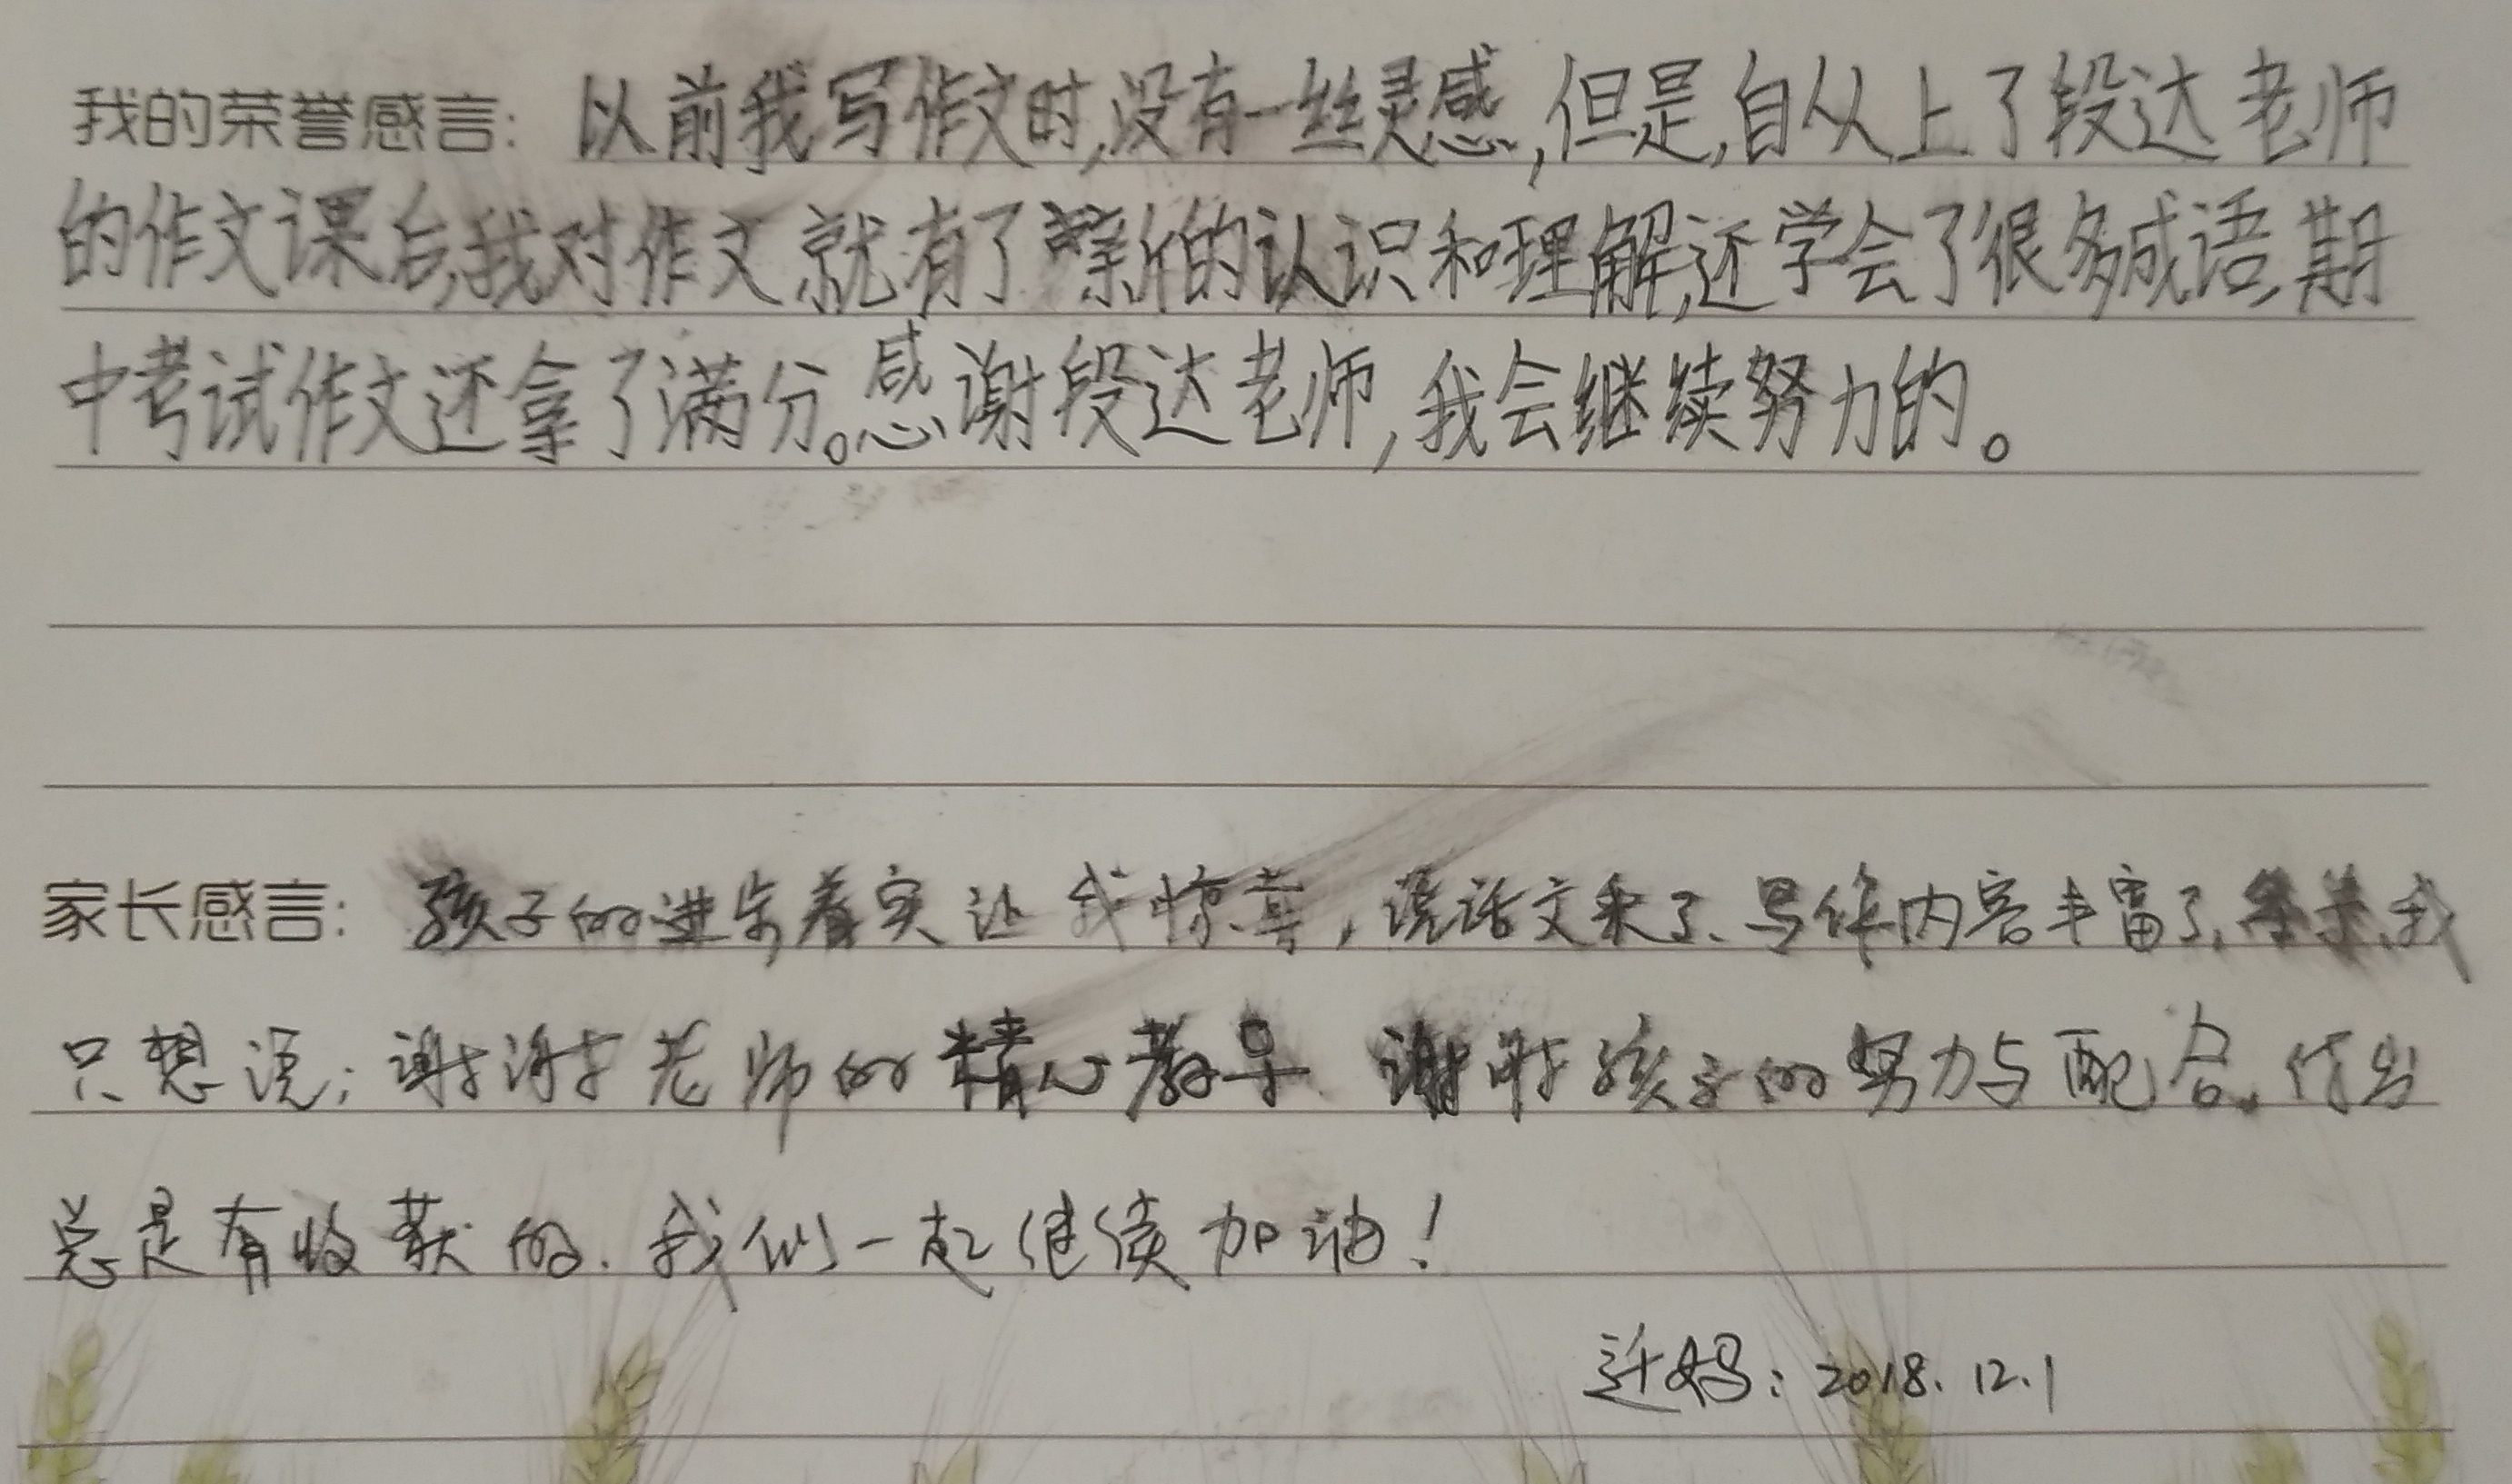 我的荣誉感言：以前我写作文时,没有一丝灵感,但是,自从上了段达老师
的作文课后,我对作文就有了新的认识和理解,还学会了很多成语,期
中考试作文还拿了满分。感谢段达老师,我会继续努力的。
家长感言：孩子的进步着实让我惊喜,说话文采了、写作内容丰富了,等等,我
只想说：谢谢老师的精心教导 谢谢孩子的努力与配合。付出
总是有收获的.我们一起继续加油！
迁妈：2018.12.1